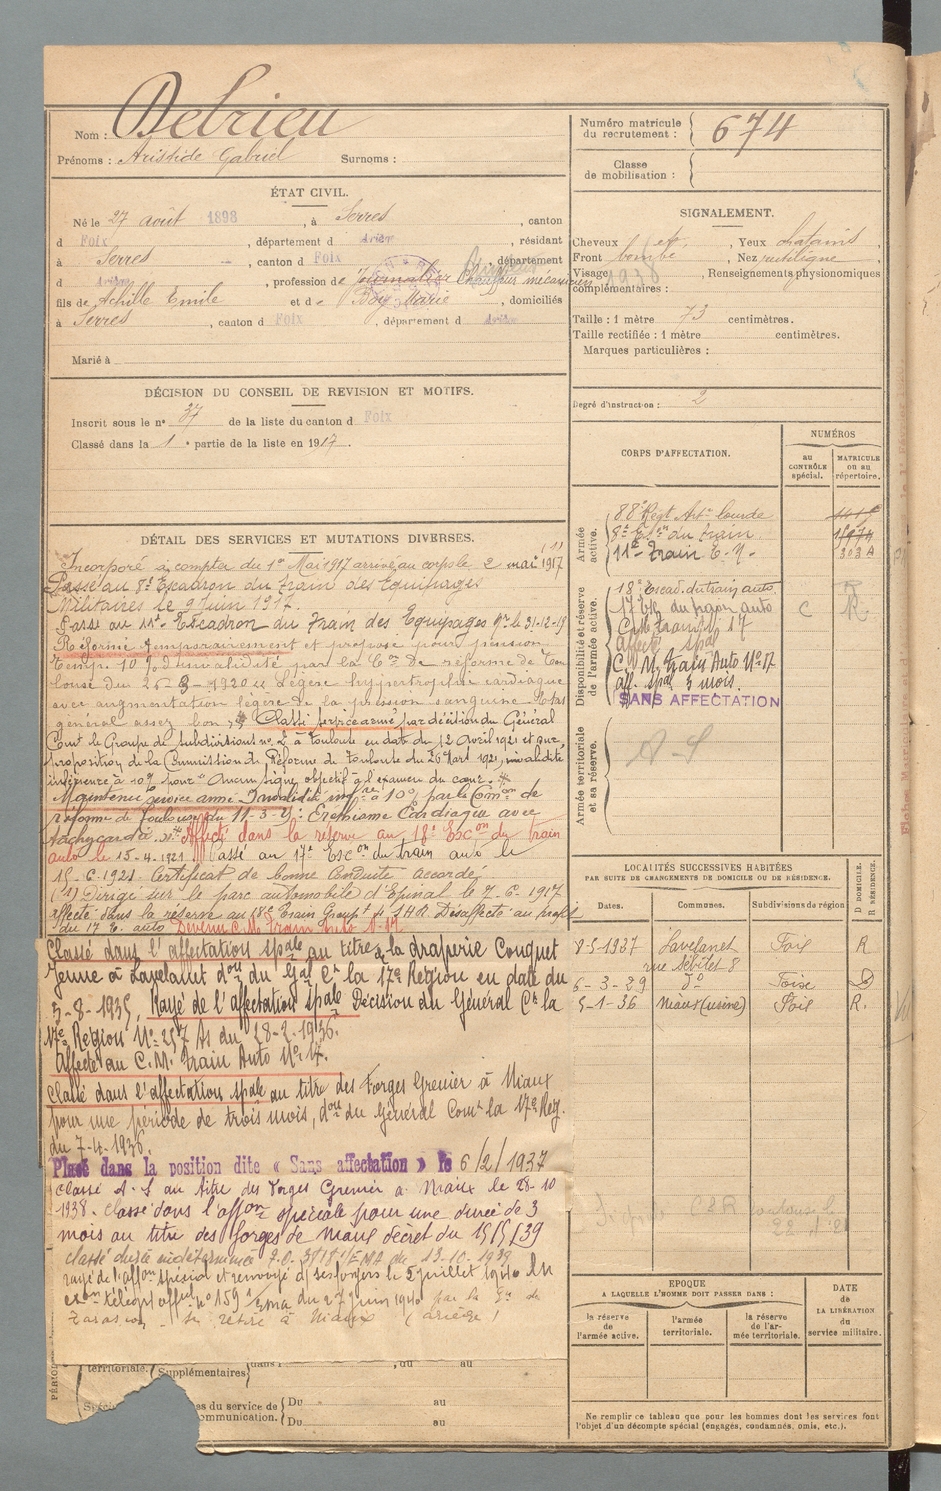 Nom : Delrieu
Prénoms : Aristide Gabriel Surnoms :
ÉTAT CIVIL.
Né le 27 août 1898, à Serres, canton
d Foix, département d Ariège, résidant
à Serres, canton d Foix, département
d Ariège, profession de Journalier Chauffeur mécanicien
fils de Achille Emile et de Marie, domiciliés
à Serres, canton d Foix, département d Ariège
Marié à
DÉCISION DU CONSEIL DE REVISION ET MOTIFS.
Inscrit sous le n° 37 de la liste du canton d Foix
Classé dans la 1e partie de la liste en 1917.
DÉTAIL DES SERVICES ET MUTATIONS DIVERSES.
(1)
Incorporé à compter du 1er Mai 1917 arrivé au corps le 2 mai 1917
Passé au 8e Escadron du Train des Equipages
Militaires le 9 Juin 1917.
Passé au 11e Escadron du Train des Equipages Mres le 31-12-19
Réformé temporairement et proposé pour pension
temp. 10 % d'invalidité par la Con de réforme de Tou
louse du 26-3-1920 "Légère hypertrophie cardiaque
avec augmentation légère de la pression sanguine. Etat
général assez bon". Classé service armé par décision du Général
Comt le Groupe de subdivisions n° 2 à Toulouse en date du 12 Avril 1921 et sur
proposition de la Commission de Réforme de Toulouse du 26 Mars 1921, invalidité
inférieure à 10% pour "Aucun signe objectif à l'examen du cœur."
Maintenu service armé Invalidité infre à 10% par la Comon de
réforme de Toulouse du 11-3- : Eréthisme Cardiaque avec
tachycardie. Affecté dans la réserve au 18e Escon du train
auto le 15-4-1921 Passé au 17e Escon du train auto le
1921. Certificat de bonne Conduite accordé.
(1) Dirigé sur le parc automobile d'Epinal le 7-6-1917
affecté dans la réserve au 18e Train Désaffecté au profit
du 17 E. auto Devenu C.M. Train Auto N° 17
Classé dans l'affectation spale au titre de la draperie Couquet
Jenne à Lavelanet don du Gal Ct la 17e Région en date du
3-8-1935. Rayé de l'affectation spale Décision du Général Ct la
17e Région N° 257 As du 28-2-1936.
Affecté au C.M. Train Auto N° 17.
Classé dans l'affectation spale au titre des Forges Grenier à Niaux
pour une période de trois mois, don du Général Comt la 17e Rég.
du 7-4-1936.
Placé dans la position dite « Sans affectation » le 6/2/1937
Classé A.S au titre des Forges Grenier à Niaux le 28-10
1938. Classé dans l'affon spéciale pour une durée de 3
mois au titre des forges de Niaux décret du
classé durée indéterminée /EMA du 13-10-1939
rayé de l'affon spécial et renvoyé ds ses foyers le 5 juillet 1940 en
télégr offel n° 159 /EMA du 27 juin 1940 par la Gie de
Tarascon. Se retire à Niaux (Ariège)
territoriale. Supplémentaires dans , du au
es du service de
ommunication.
Du au
Du au
PÉRIOD
Numéro matricule
du recrutement : 674
Classe
de mobilisation :
SIGNALEMENT.
Cheveux , Yeux chatains,
Front bombé, Nez rectiligne,
Visage , Renseignements physionomiques
complémentaires :
1938
Taille : 1 mètre 73 centimètres.
Taille rectifiée : 1 mètre centimètres.
Marques particulières :
Degré d'instruction : 2
CORPS D'AFFECTATION.
NUMÉROS
au CONTRÔLE spécial.
MATRICULE ou au répertoire.
Armée active.
88e Régt Artie lourde
8e Eson du train
11e Train E.M. 303 A
Disponibilité et réserve de l'armée active.
18e Escad. du train auto
17 Esc. du train auto C R
C.M. Train N° 17
affecté spal
C.M. Train Auto N° 17
aff. spal 3 mois.
SANS AFFECTATION
Armée territoriale et sa réserve.
A-S
LOCALITÉS SUCCESSIVES HABITÉES
PAR SUITE DE CHANGEMENTS DE DOMICILE OU DE RÉSIDENCE.
Dates. Communes. Subdivisions de région
D DOMICILE.
R RÉSIDENCE.
Lavelanet Foix R
rue 8
6-3-29 do Foix D
5-1-36 Niaux (usine) Foix R.
EPOQUE
A LAQUELLE L'HOMME DOIT PASSER DANS :
la réserve de l'armée active.
l'armée territoriale.
la réserve de l'armée territoriale.
DATE de LA LIBÉRATION du service militaire.
Ne remplir ce tableau que pour les hommes dont les services font
l'objet d'un décompte spécial (engagés, condamnés, omis, etc.).